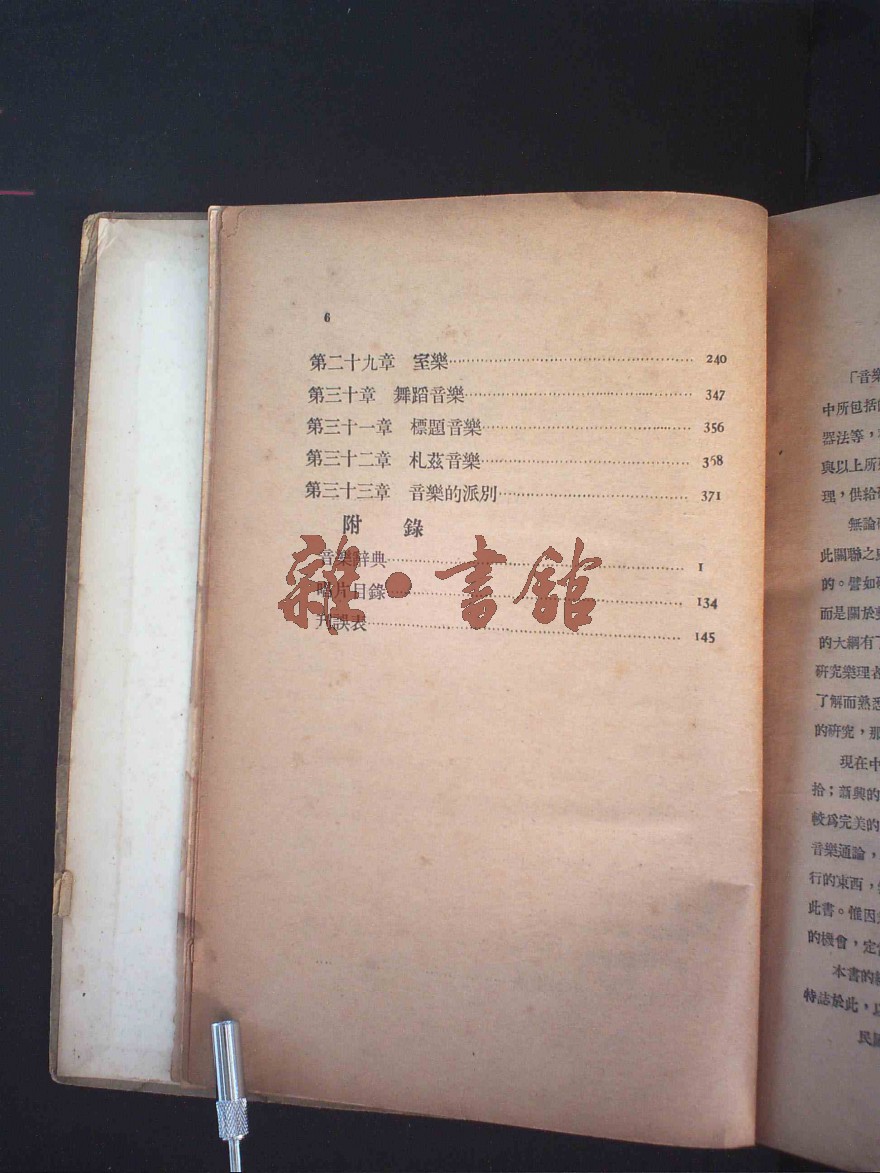 6
第二十九章 室樂 240
第三十章 舞蹈音樂 347
第三十一章 標題音樂 356
第三十二章 札茲音樂 368
第三十三章 音樂的派別 371
附 錄
音樂辭典 1
唱片目錄 134
刊誤表 145
雜·書館
「音樂
中所包括
器法等，
與以上所
理，供給
無論
此關聯之
的。譬如
而是關於
的大綱有了
研究樂理者
了解而熟悉
的研究，那
現在中
拾；新興的
較爲完美的
音樂通論，
行的東西，
此書。惟因
的機會，定
本書的
特誌於此，以
民國